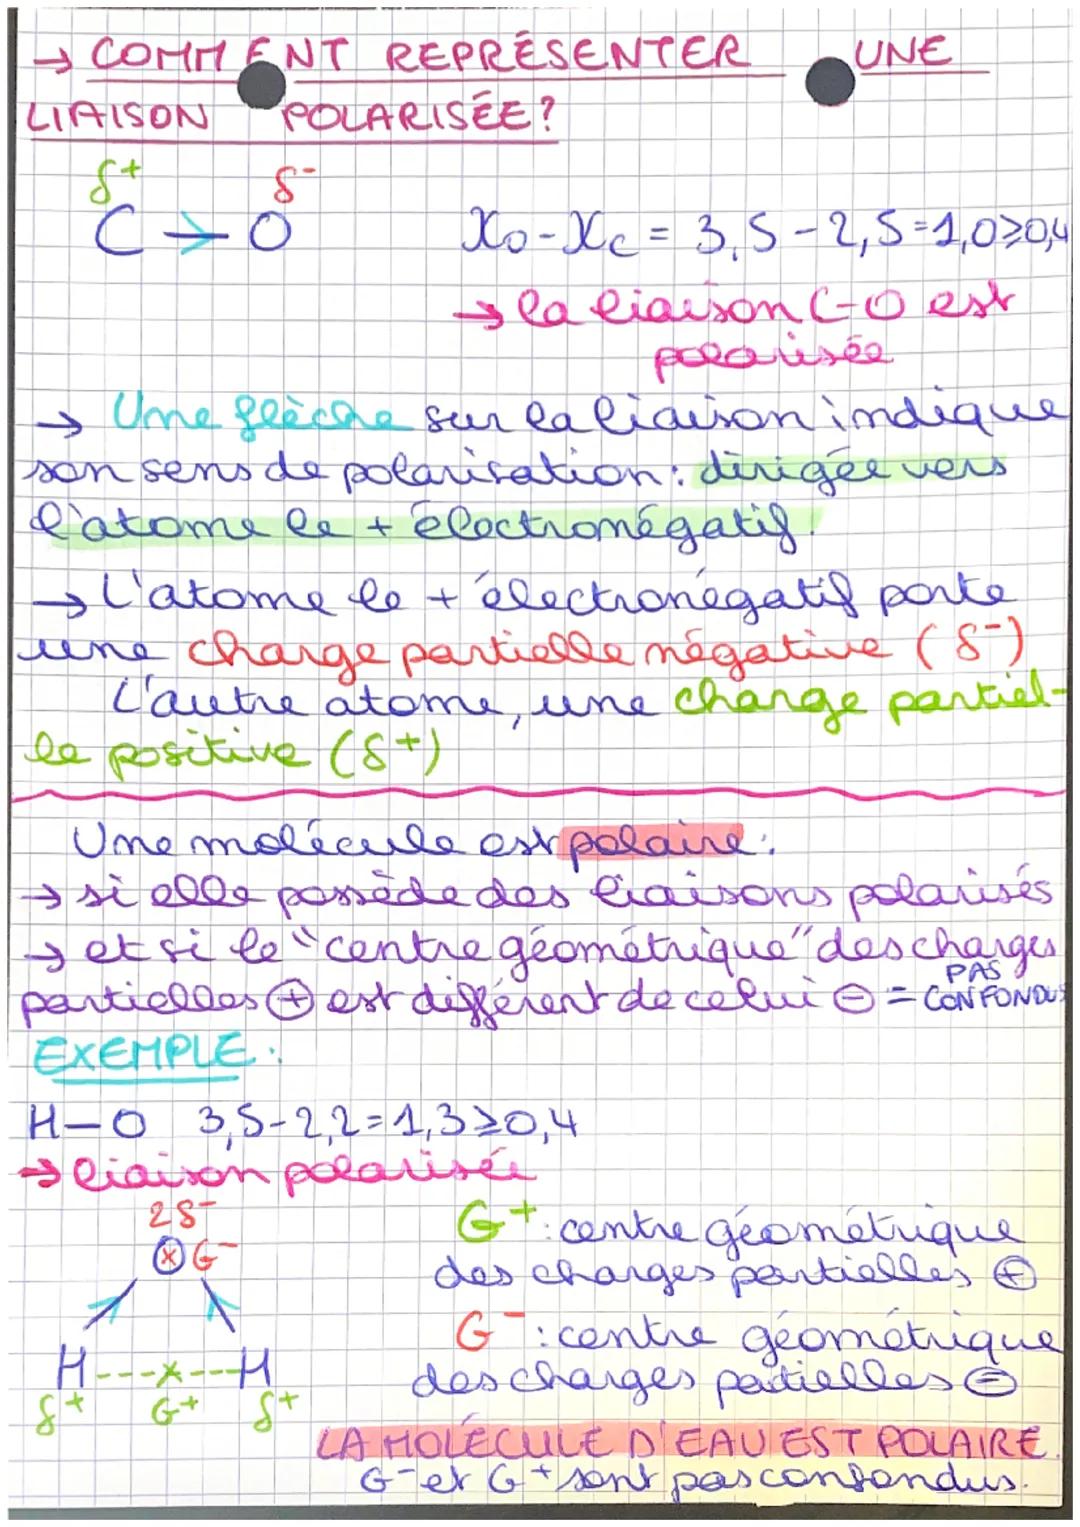 → COMMENT REPRÉSENTER UNE
LIAISON POLARISÉE?
δ+ δ-
C → O χo-χc = 3,5-2,5=1,0≥0,4
→ la liaison C-O est
polarisée
→ Une flèche sur la liaison indique
son sens de polarisation: dirigée vers
l'atome le + électronégatif!
→ L'atome le + électronégatif porte
une charge partielle négative (δ-)
L'autre atome, une charge partiel-
le positive (δ+)
Une molécule est polaire:
→ si elle possède des liaisons polarisés
→ et si le "centre géométrique" des charges
partielles ⊕ est différent de celui ⊖ = PAS CONFONDUS
EXEMPLE:
H-O 3,5-2,2=1,3≥0,4
→ liaison polarisée
2δ-
O G-
H---x---H
δ+ G+ δ+
G+: centre géométrique
des charges partielles ⊕
G-: centre géométrique
des charges partielles ⊖
LA MOLÉCULE D'EAU EST POLAIRE.
G- et G+ sont pas confondus.